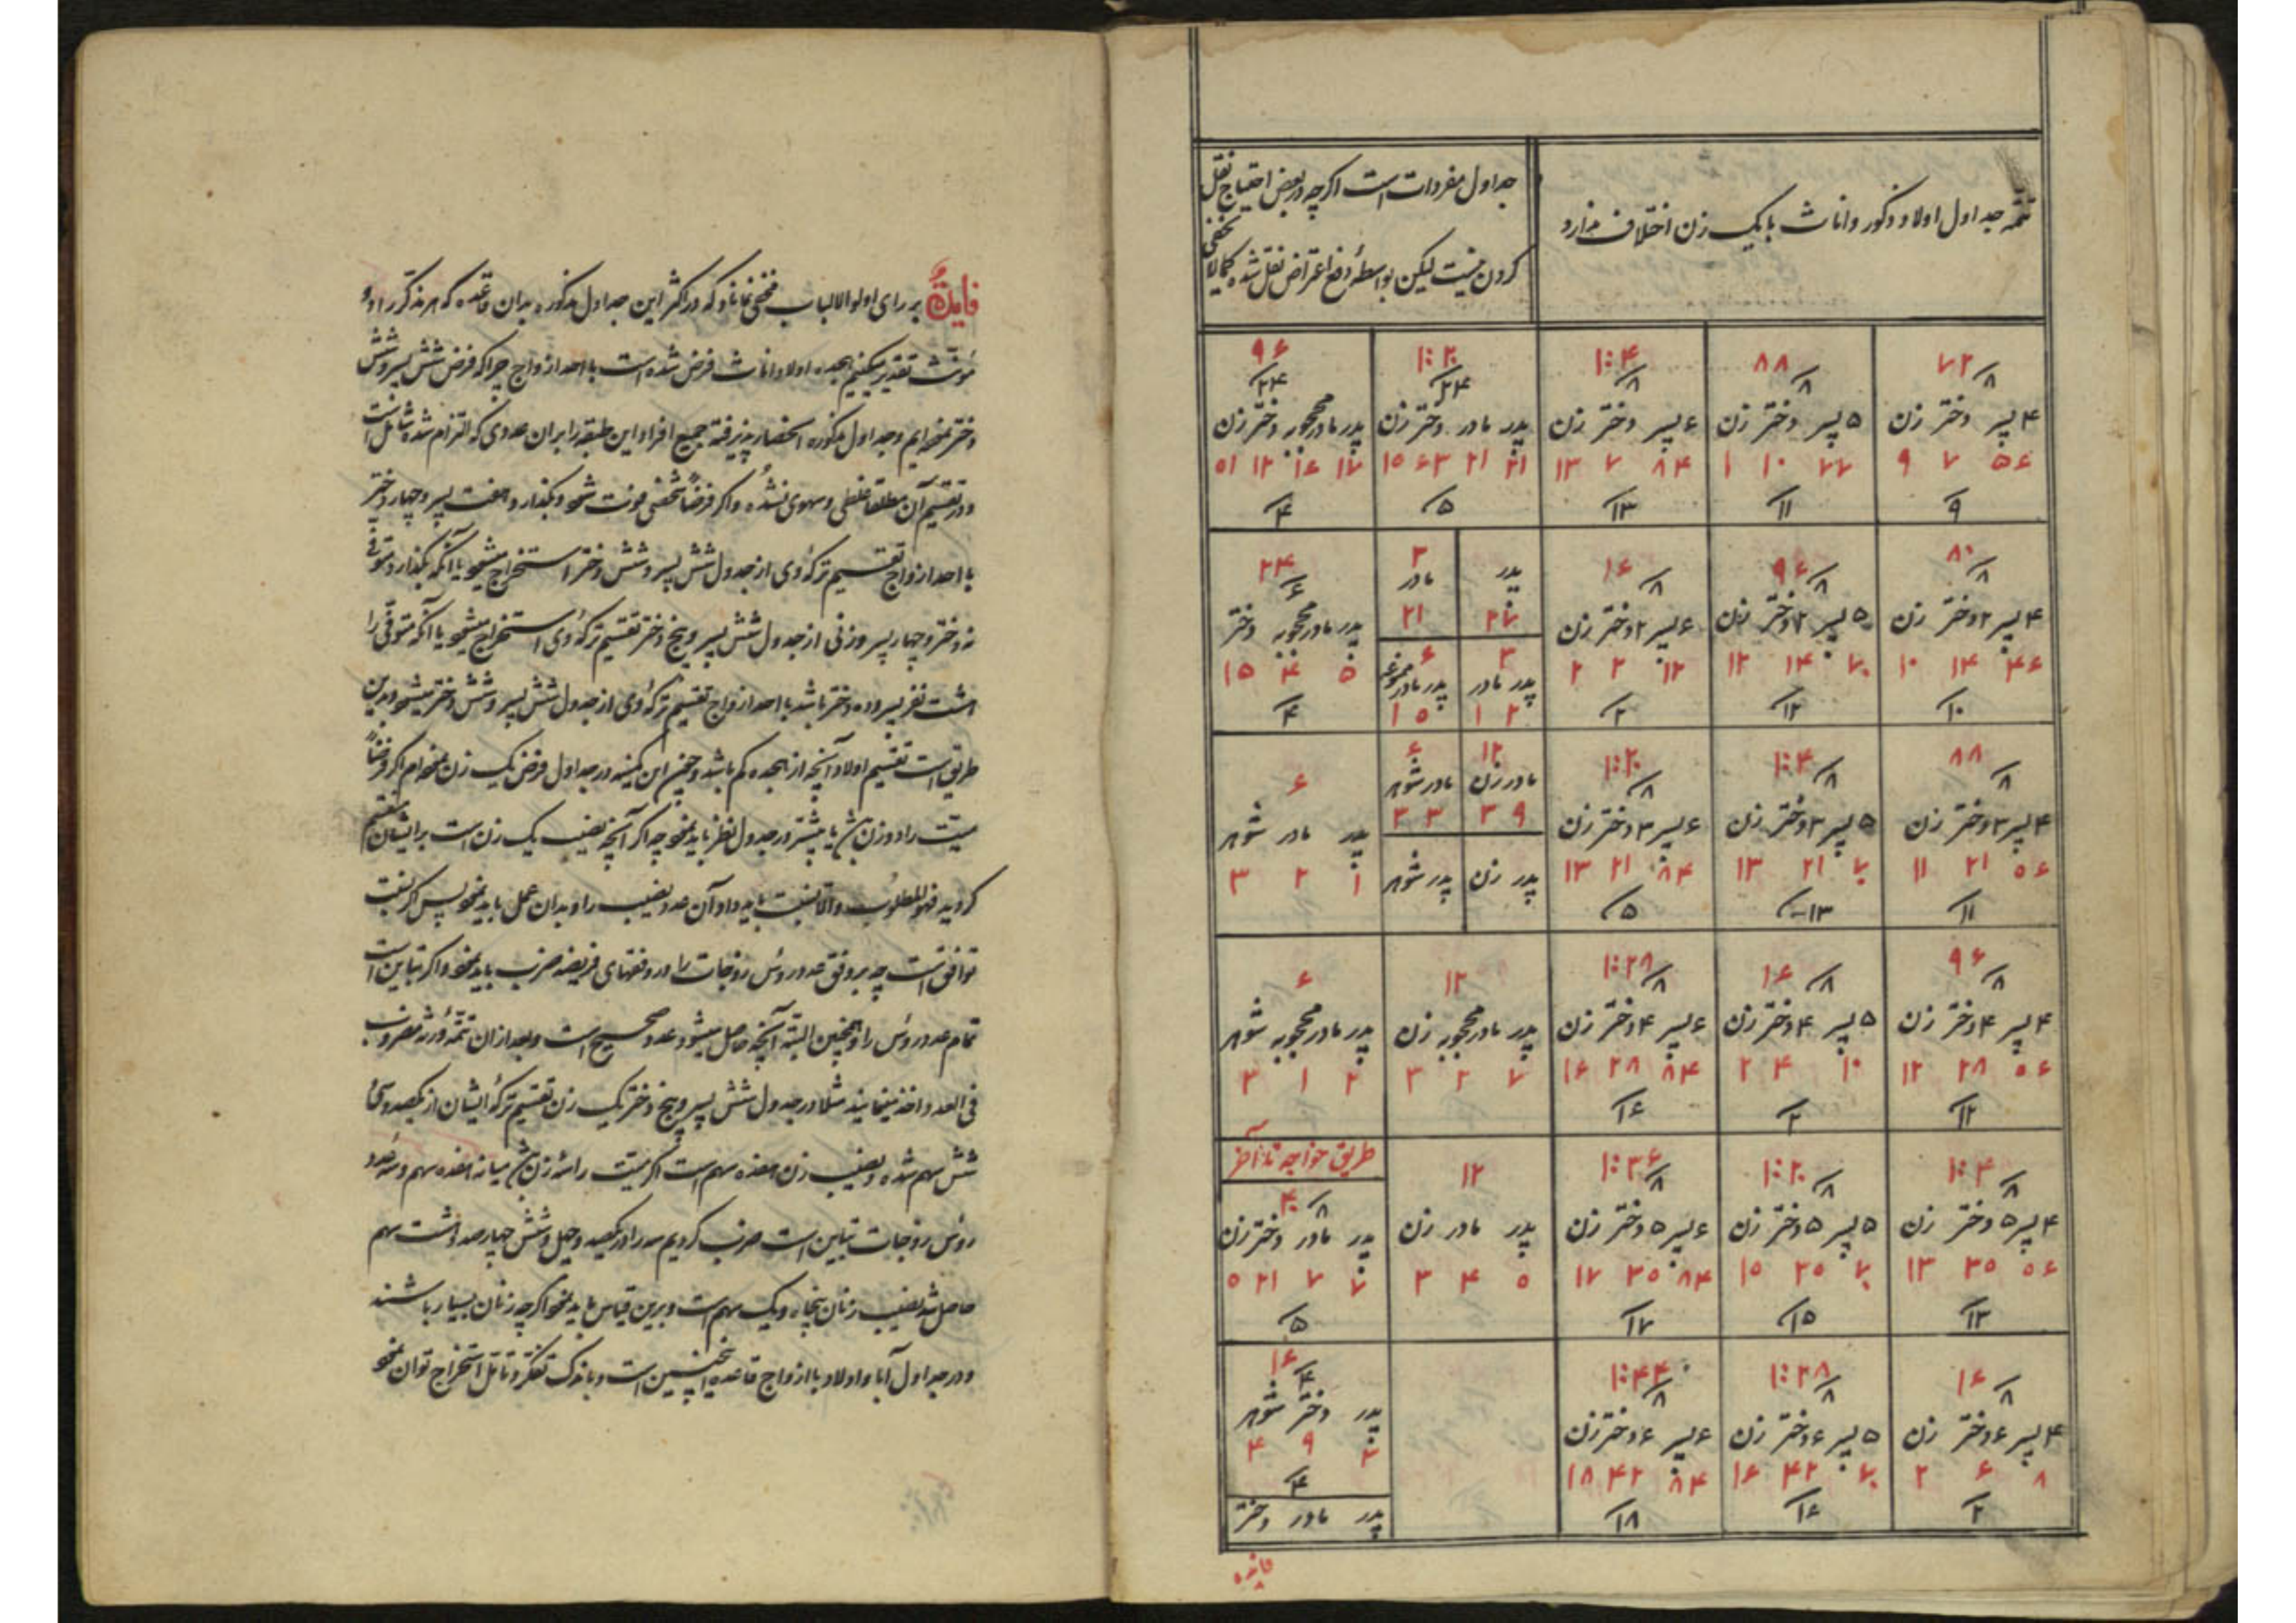 تتمه جداول اولاد ذکور و اناث با یک زن اختلاف ندارد
جداول مفردات است اگرچه در بعض احتیاج نقل
کردن نیست لیکن بواسطهٔ دفع اعتراض نقل شده کمالایخفی
۷۲ ۸
۴ پسر دختر زن
۵۶ ۷ ۹
۹
۸۸ ۸
۵ پسر دختر زن
۷۷ ۱۰ ۱
۱۱
۱۰۴ ۸
۶ پسر دختر زن
۸۴ ۷ ۱۳
۱۳
۱۲۰ ۲۴
پدر مادر دختر زن
۲۱ ۲۱ ۶۳ ۱۵
۵
۹۶ ۲۴
پدر مادر محجوبه دختر زن
۱۷ ۱۶ ۱۲ ۵۱
۴
۸۰ ۸
۴ پسر ۲ دختر زن
۴۶ ۱۴ ۱۰
۱۰
۹۶ ۸
۵ پسر ۲ دختر زن
۷۰ ۱۴ ۱۲
۱۲
۱۶ ۸
۶ پسر ۲ دختر زن
۱۲ ۲ ۲
۲
پدر
۲۷
۳
مادر
۲۱
۳
پدر مادر
۲ ۱
۶
پدر مادر
۵ ۱
۲۴ ۶
پدر مادر محجوبه دختر
۵ ۴ ۱۵
۴
۸۸ ۸
۴ پسر ۳ دختر زن
۵۶ ۲۱ ۱۱
۱۱
۱۰۴ ۸
۵ پسر ۳ دختر زن
۷۰ ۲۱ ۱۳
۱۳
۱۲۰ ۸
۶ پسر ۳ دختر زن
۸۴ ۲۱ ۱۳
۵
۱۲
مادر زن
۹ ۳
۶
مادر شوهر
۳ ۳
پدر زن
پدر شوهر
۶
پدر مادر شوهر
۱ ۲ ۳
۹۶ ۸
۴ پسر ۴ دختر زن
۵۶ ۲۸ ۱۲
۱۲
۱۶ ۸
۵ پسر ۴ دختر زن
۱۰ ۴ ۲
۲
۱۲۸ ۸
۶ پسر ۴ دختر زن
۸۴ ۲۸ ۱۶
۱۶
۱۲
پدر مادر محجوبه زن
۷ ۲ ۳
۶
پدر مادر محجوبه شوهر
۲ ۱ ۳
۱۰۴ ۸
۴ پسر ۵ دختر زن
۵۶ ۳۵ ۱۳
۱۳
۱۲۰ ۸
۵ پسر ۵ دختر زن
۷۰ ۳۵ ۱۵
۱۵
۱۳۶ ۸
۶ پسر ۵ دختر زن
۸۴ ۳۵ ۱۷
۱۷
۱۲
پدر مادر زن
۵ ۴ ۳
طریق خواجه تا آخر
۴۰ ۸
پدر مادر دختر زن
۷ ۷ ۲۱ ۵
۵
۱۶ ۸
۴ پسر ۶ دختر زن
۸ ۶ ۲
۲
۱۲۸ ۸
۵ پسر ۶ دختر زن
۷۰ ۴۲ ۱۶
۱۶
۱۴۴ ۸
۶ پسر ۶ دختر زن
۸۴ ۴۲ ۱۸
۱۸
۱۶ ۴
پدر دختر شوهر
۳ ۹ ۴
۴
پدر مادر دختر
فایده
فایدهٔ بر رای اولوالالباب مخفی نماند که در اکثر این جداول مذکوره بدان قاعده که هر مذکر را دو
مؤنث تقدیر میکنیم هجده اولاد اناث فرض شده است با احد ازواج چراکه فرض شش پسر و شش
دختر نموده‌ایم و جداول مذکوره انحصار پذیرفته جمیع افراد این طبقه را بران عددی که التزام شده شامل است
و در تقسیم آن مطلقا غلطی و سهوی نشده و اگر فرضاً شخصی فوت شود و بگذارد هفت پسر و چهار دختر
با احد ازواج تقسیم ترکه وی از جدول شش پسر و شش دختر استخراج میشود یا آنکه بگذارد متوفی
نه دختر و چهار پسر و زنی از جدول شش پسر و پنج دختر تقسیم ترکهٔ وی استخراج میشود یا آنکه متوفی را
هشت نفر پسر و ده دختر باشد با احد ازواج تقسیم ترکهٔ وی از جدول شش پسر و شش دختر میشود و بدین
طریق است تقسیم اولاد آنچه از هجده کم باشد و چنین این کمینه در جداول فرض یک زن نموده‌ام اگر فرضاً
میت را دو زن باشد یا بیشتر در جدول نظر باید نمود چه اگر آنچه نصیب یک زن است برایشان تقسیم
گردید فهوالمطلوب والا نسبت باید داد آن عدد نصیب را و بدان عمل باید نمود پس اگر نسبت
توافق است چه بر وفق عدد روس زوجات را در وفقهای فریضه ضرب باید نمود و اگر تباین است
تمام عدد روس را و همچنین البته آنچه حاصل میشود عدد صحیح است و بعد ازان تتمهٔ ورثه مضروب
فی العدد اخذ مینمایند مثلا در جدول شش پسر و پنج دختر یک زن تقسیم ترکهٔ ایشان از یکصد و سی
شش سهم شده و نصیب زن هفده سهم است اگر میت را سه زن باشد میانه هفده سهم و سه عدد
روس زوجات تباین است ضرب کردیم سه را در یکصد و چهل و شش چهارصد و هشت سهم
حاصل شد نصیب زنان پنجاه و یک سهم است و برین قیاس باید نمود اگرچه زنان بسیار باشند
و در جداول آبا و اولاد با ازواج قاعده اینچنین است و باندک تفکر و تامل استخراج توان نمود